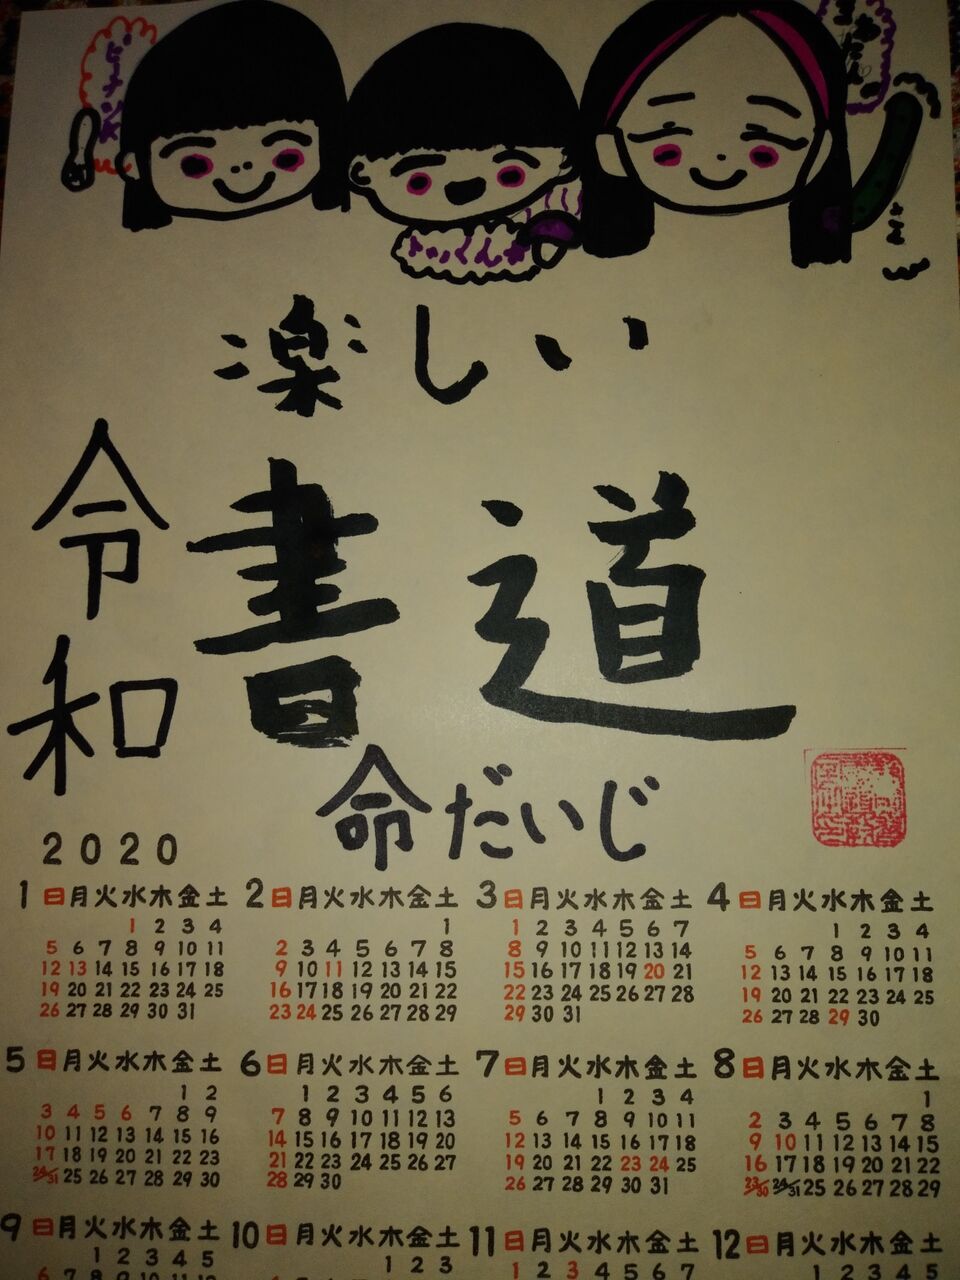 楽しい
書道
令和
命だいじ
2020
1 日月火水木金土
1 2 3 4
5 6 7 8 9 10 11
12 13 14 15 16 17 18
19 20 21 22 23 24 25
26 27 28 29 30 31
2 日月火水木金土
1
2 3 4 5 6 7 8
9 10 11 12 13 14 15
16 17 18 19 20 21 22
23 24 25 26 27 28 29
3 日月火水木金土
1 2 3 4 5 6 7
8 9 10 11 12 13 14
15 16 17 18 19 20 21
22 23 24 25 26 27 28
29 30 31
4 日月火水木金土
1 2 3 4
5 6 7 8 9 10 11
12 13 14 15 16 17 18
19 20 21 22 23 24 25
26 27 28 29 30
5 日月火水木金土
1 2
3 4 5 6 7 8 9
10 11 12 13 14 15 16
17 18 19 20 21 22 23
24/31 25 26 27 28 29 30
6 日月火水木金土
1 2 3 4 5 6
7 8 9 10 11 12 13
14 15 16 17 18 19 20
21 22 23 24 25 26 27
28 29 30
7 日月火水木金土
1 2 3 4
5 6 7 8 9 10 11
12 13 14 15 16 17 18
19 20 21 22 23 24 25
26 27 28 29 30 31
8 日月火水木金土
1
2 3 4 5 6 7 8
9 10 11 12 13 14 15
16 17 18 19 20 21 22
23/30 24/31 25 26 27 28 29
9 日月火水木金土
1 2 3 4 5
6 7 8 9 10 11 12
10 日月火水木金土
1 2 3
11 日月火水木金土
1 2 3 4 5 6 7
12 日月火水木金土
1 2 3 4 5